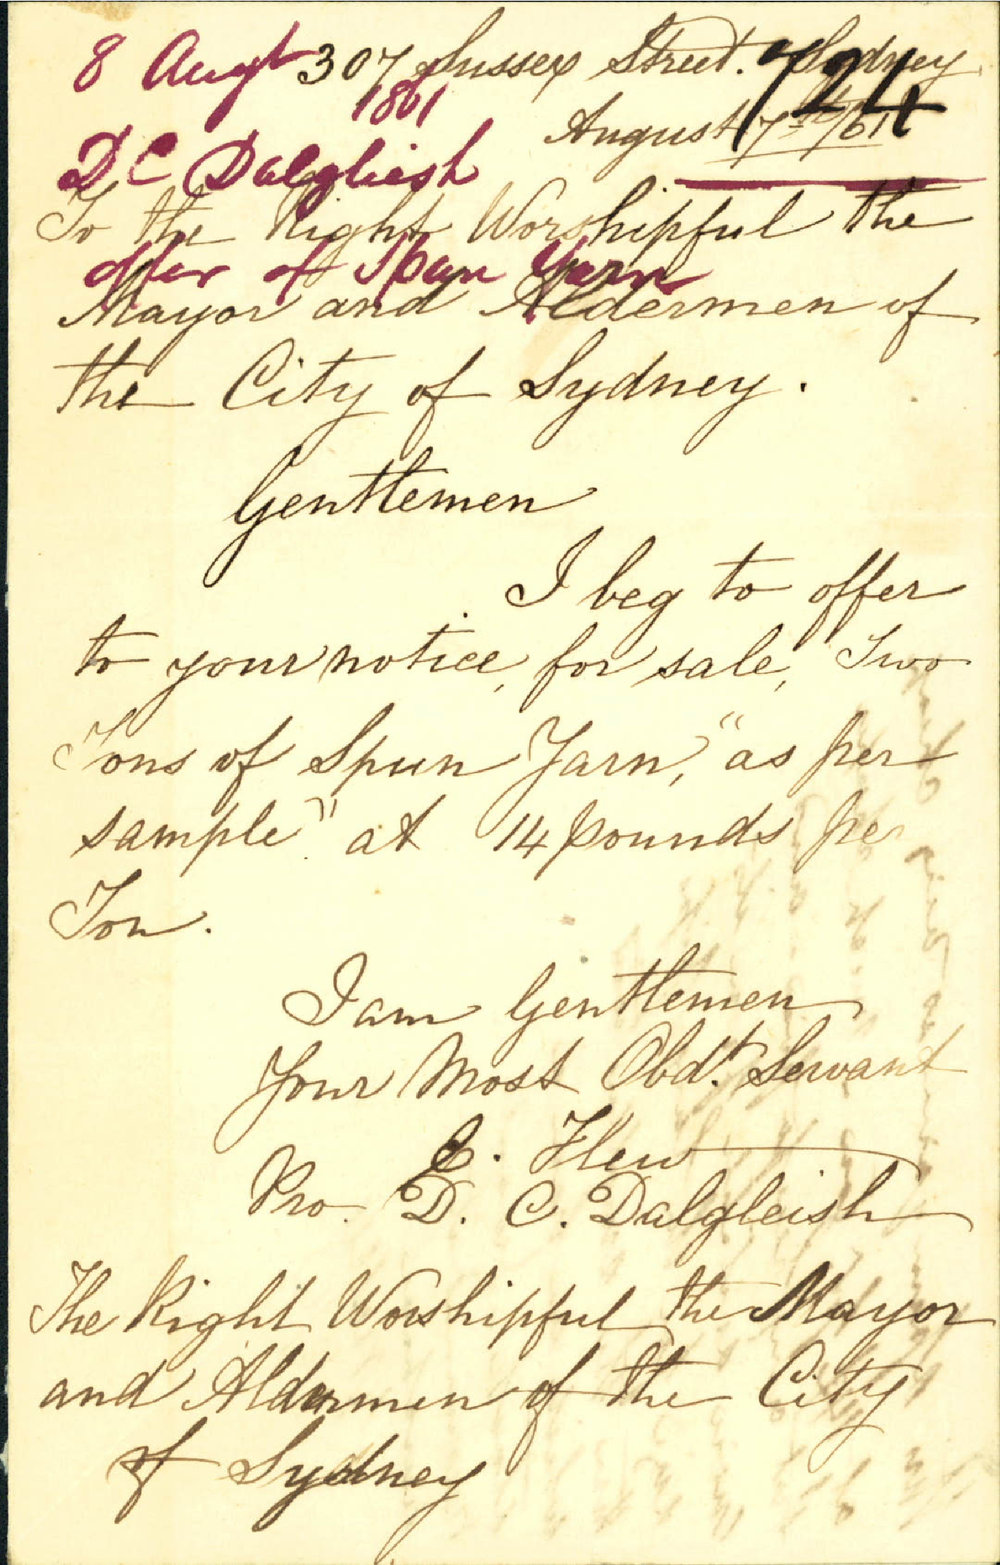 8 Augt
1861
D C Dalgliesh
offer of Spun Yarn
724
307 Sussex Street. Sydney
August 7th/61
To the Right Worshipful the
Mayor and Aldermen of
the City of Sydney.
Gentlemen
I beg to offer
to your notice, for sale, Two
Tons of Spun Yarn, "as per
sample" at 14 pounds per
Ton.
I am Gentlemen
Your Most Obdt. Servant
E. Flew
Pro. D. C. Dalgleish
The Right Worshipful the Mayor
and Aldermen of the City
of Sydney